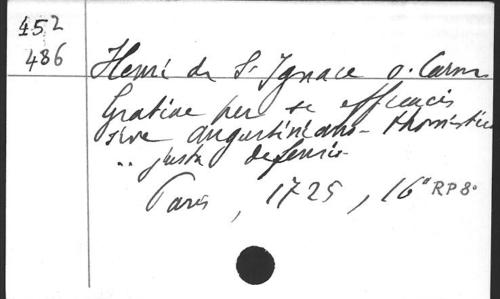 452
486
Henri de St Ignace o. Carm.
Gratiae per se efficacis
sive augustiniano-thomisticae
.. justa defensio
Paris, 1725, 16° RP8°